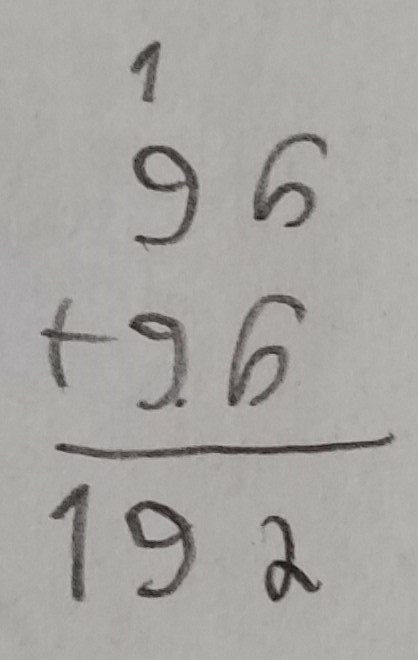 1
96
+96
192